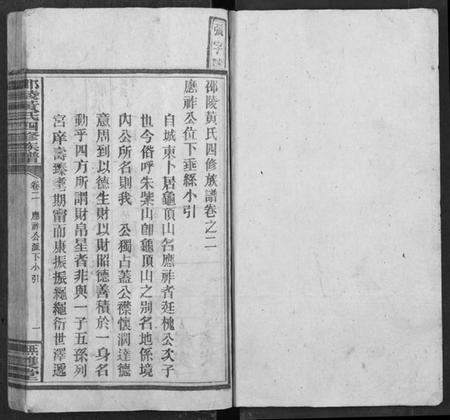 張字
邵陵黃氏四修族譜卷之二
應祚公位下垂絲小引
自城東卜居龜頂山名應祚者逛槐公次子
也今俗呼朱紫山卽龜頂山之別名地係境
內公所名則我　公獨占蓋公襟懷濶達德
意周到以德生財以財昭德善積於一身名
動乎四方所謂財帛星者非與一子五孫列
宮庠壽臻耄期甯而康振振繩繩衍世澤遞
邵陵黃氏四修族譜
卷二　應祚公派下小引
一
無雙堂